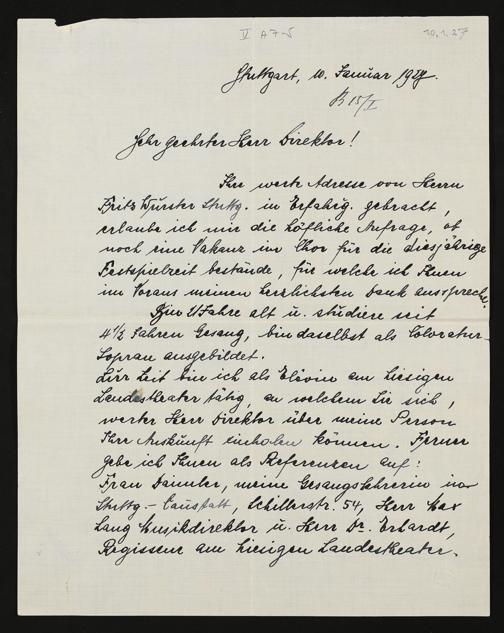 V A 7-5 10.1.27
Stuttgart, 10. Januar 1927.
B 15/I
Sehr geehrter Herr Direktor!
Ihre werte Adresse von Herrn
Fritz Wurster Stuttg. in Erfahrg. gebracht,
erlaube ich mir die höfliche Anfrage, ob
noch eine Vakanz im Chor für die diesjährige
Festspielzeit bestände, für welche ich Ihnen
im Voraus meinen herzlichsten Dank ausspreche.
Bin 21 Jahre alt u. studiere seit
4½ Jahren Gesang, bin daselbst als Coloratur-
Sopran ausgebildet.
Zur Zeit bin ich als Elevin am hiesigen
Landestheater tätig, an welchem Sie sich,
werter Herr Direktor über meine Person
Ihre Auskünft einholen können. Ferner
gebe ich Ihnen als Referenzen auf:
Frau Daimler, meine Gesangslehrerin in
Stuttg.-Canstatt, Schillerstr. 54, Herr Max
Lang Musikdirektor u. Herr Dr. Erhardt,
Regisseur am hiesigen Landestheater.